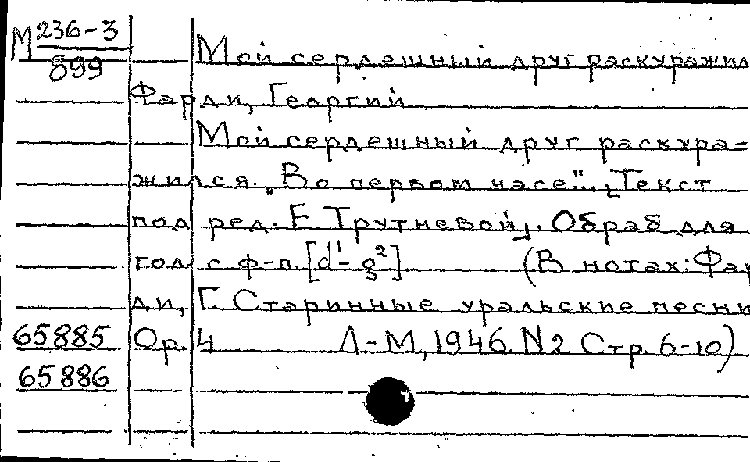 М 236-3
899
Мой сердешный друг раскуражил
Фарди, Георгий
Мой сердешный друг раскура=
жился. „Во первом часе". „Текст
под ред. Е. Трутневой„. Обраб для
гол с ф-п. [d¹-g²] (В нотах: Фар
ди, Г. Старинные уральские песни
65885 Ор. 4 Л-М, 1946. N2 Стр. 6-10)
65886